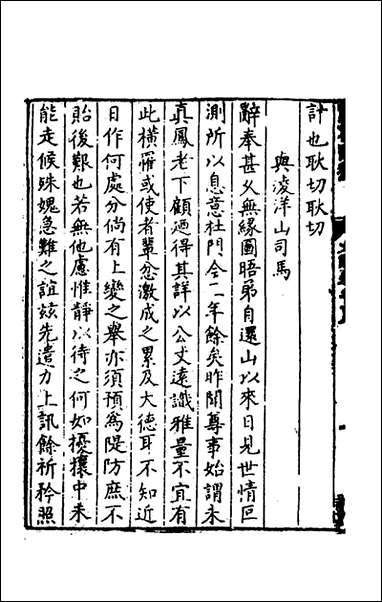 計也耿切耿切
與凌洋山司馬
辭奉甚久無緣圖晤弟自還山以來日見世情叵
測所以息意杜門今二年餘矣昨聞尊事始謂未
真鳳老下顧迺得其詳以公丈遠識雅量不宜有
此橫罹或使者輩忿激成之累及大德耳不知近
日作何處分倘有上變之舉亦須預爲隄防庶不
貽後艱也若無他慮惟靜以待之何如擾攘中未
能走候殊媿急難之誼玆先遣力上訊餘祈矜照